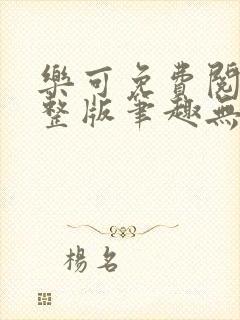 樂可免費閱
整版筆趣無
楊名